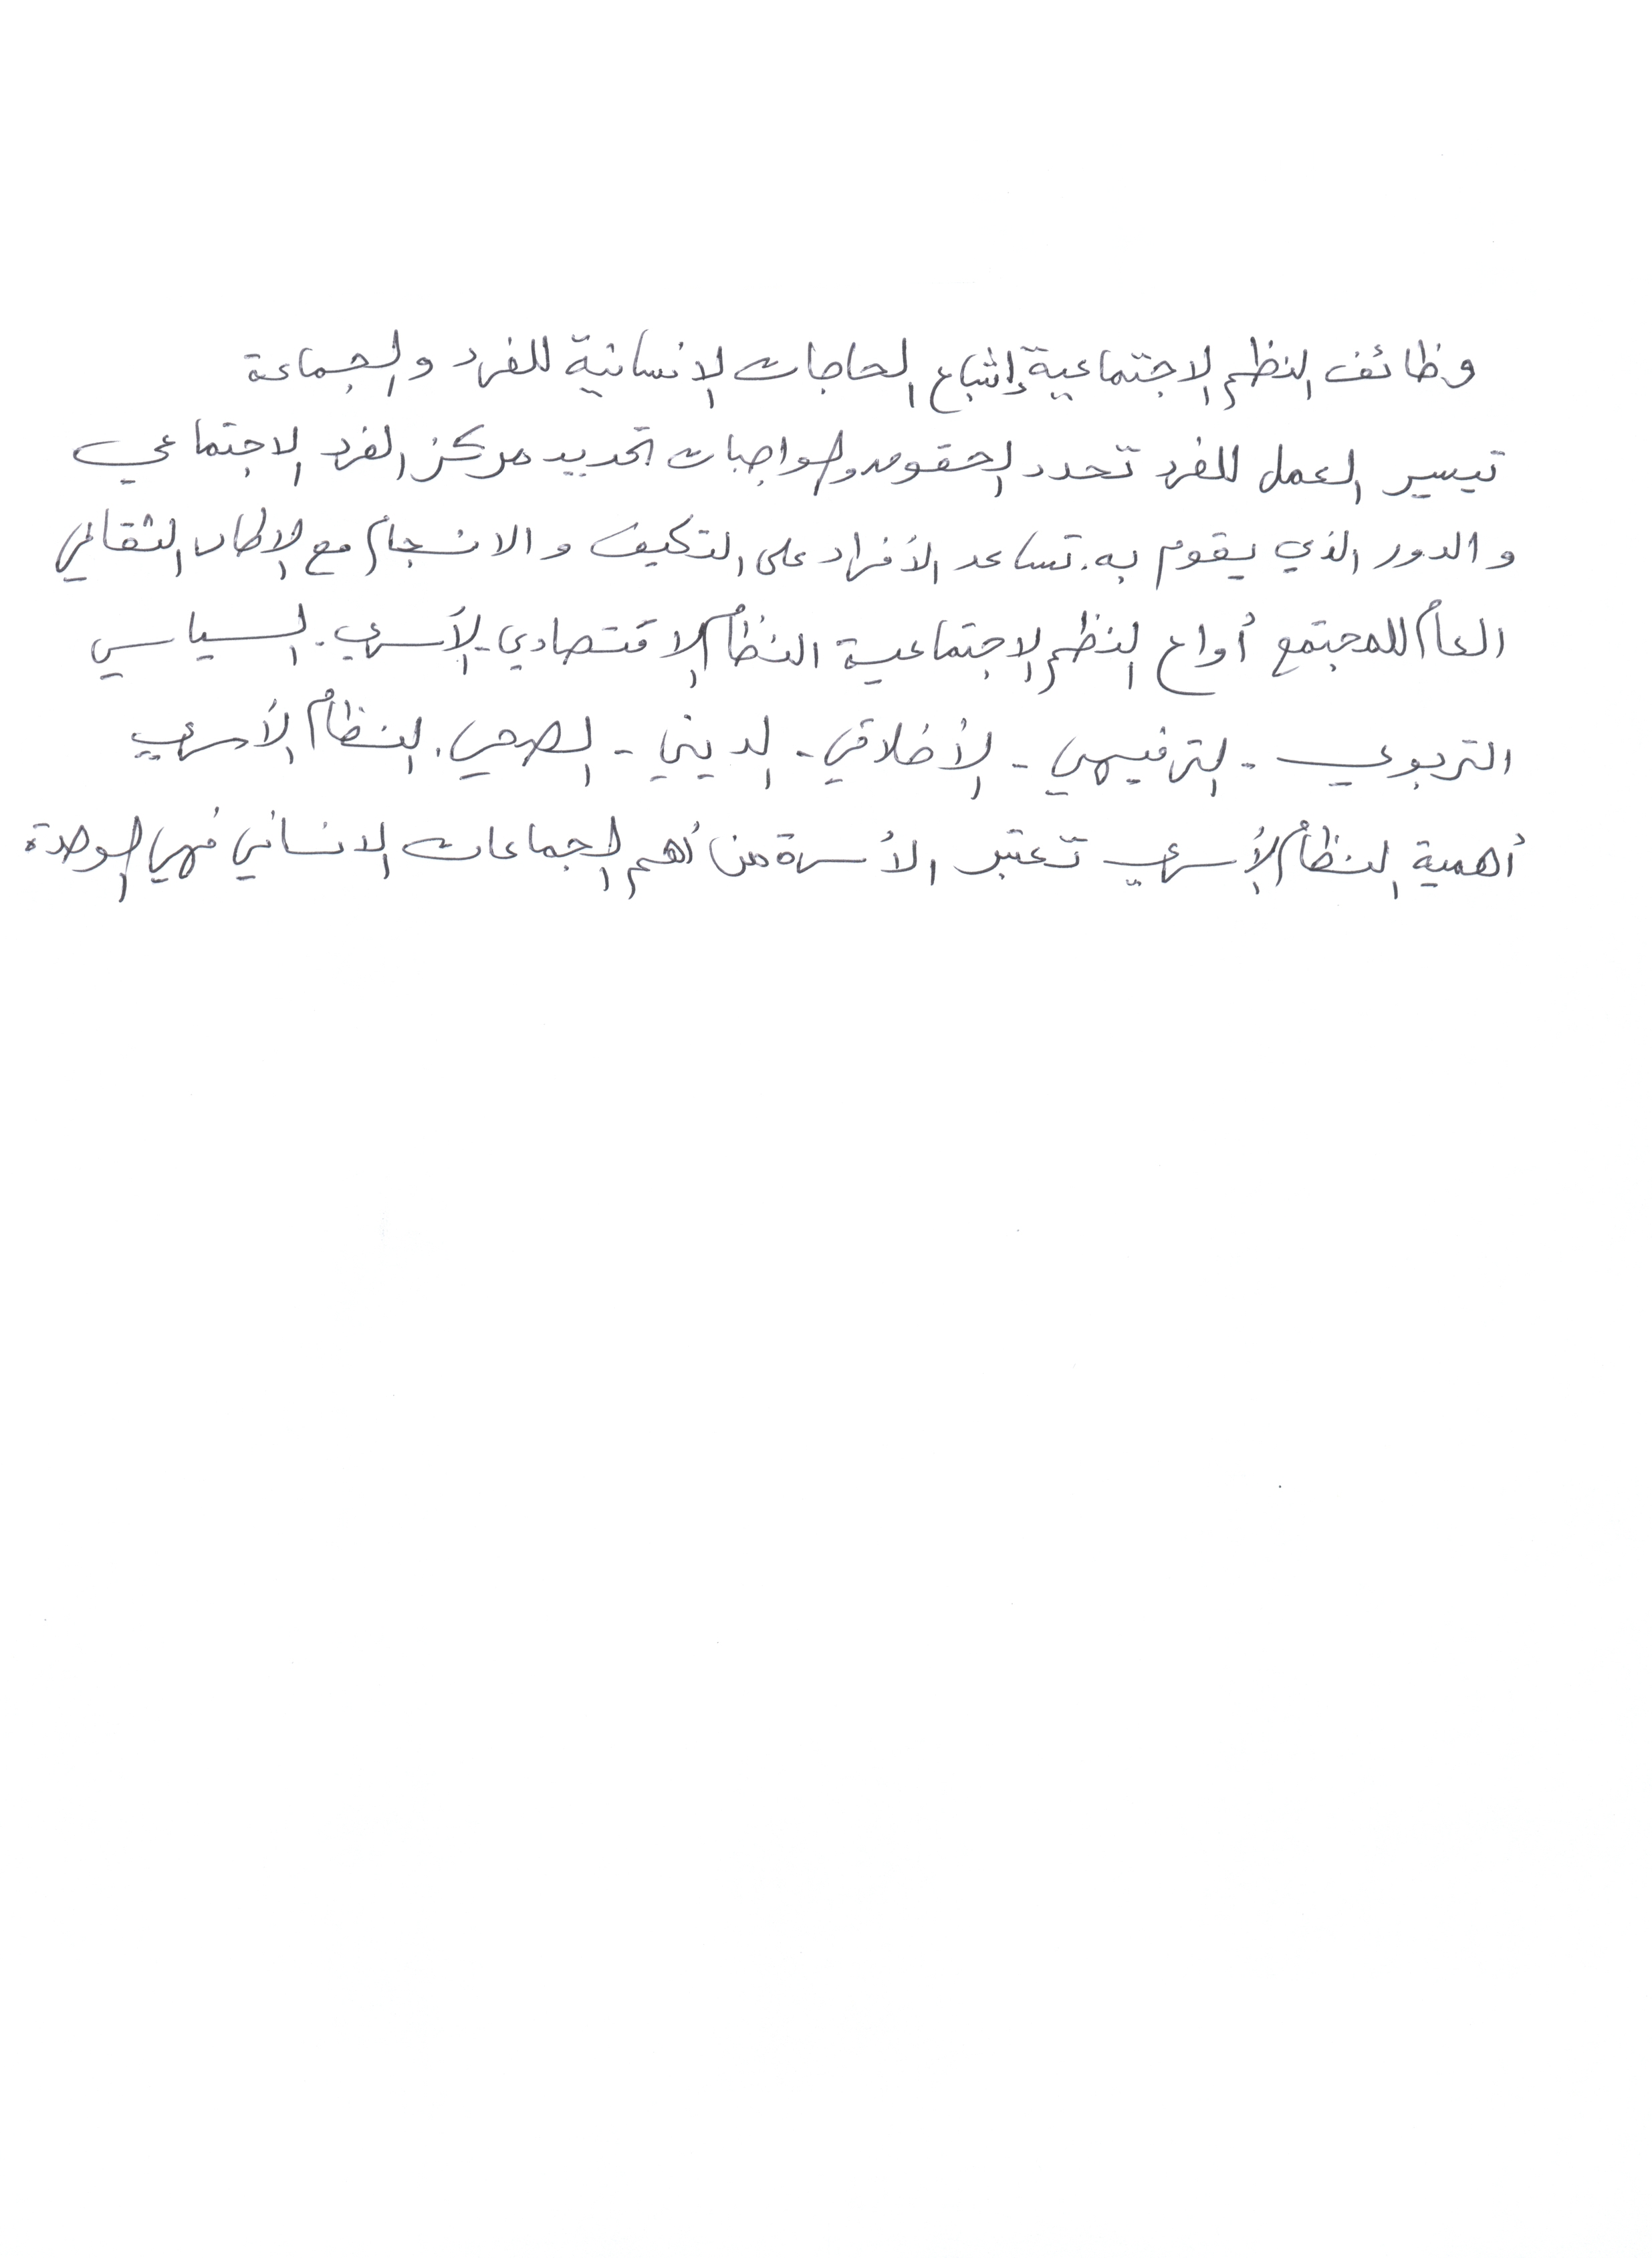 وظائف النظم الاجتماعية إشباع الحاجات الانسانية للفرد والجماعة
تيسير العمل للفرد تحدد الحقوق والواجبات تحديد مركز الفرد الاجتماعي
والدور الذي يقوم به. تساعد الأفراد على التكيف والانسجام مع الاطار الثقافي
العام للمجتمع أواع النظم الاجتماعية النظام الاقتصادي - الأسري - السياسي
التربوي - الترفيهي - الأخلاقي - الديني - الصحي. النظام الأسري
أهمية النظام الأسري تعتبر الأسرة من أهم الجماعات الانساني فهي الوحدة